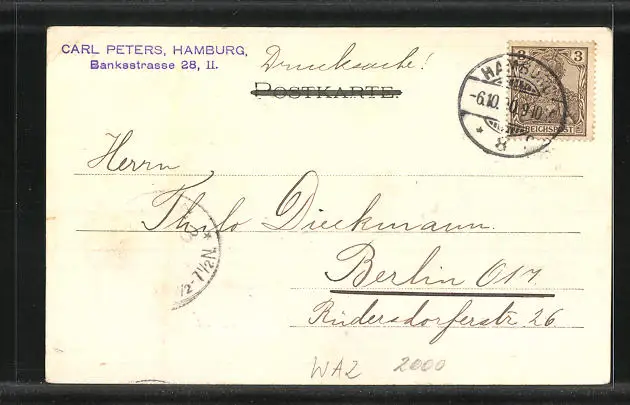 CARL PETERS, HAMBURG,
Banksstrasse 28, II.
Drucksache!
POSTKARTE.
3 3
REICHSPOST
HAMBURG
-6.10.00.9-10
* 8
Herrn
Thilo Dieckmann.
Berlin O 17.
Rüdersdorferstr. 26.
/2-7 1/2 N. *
WAZ 2000